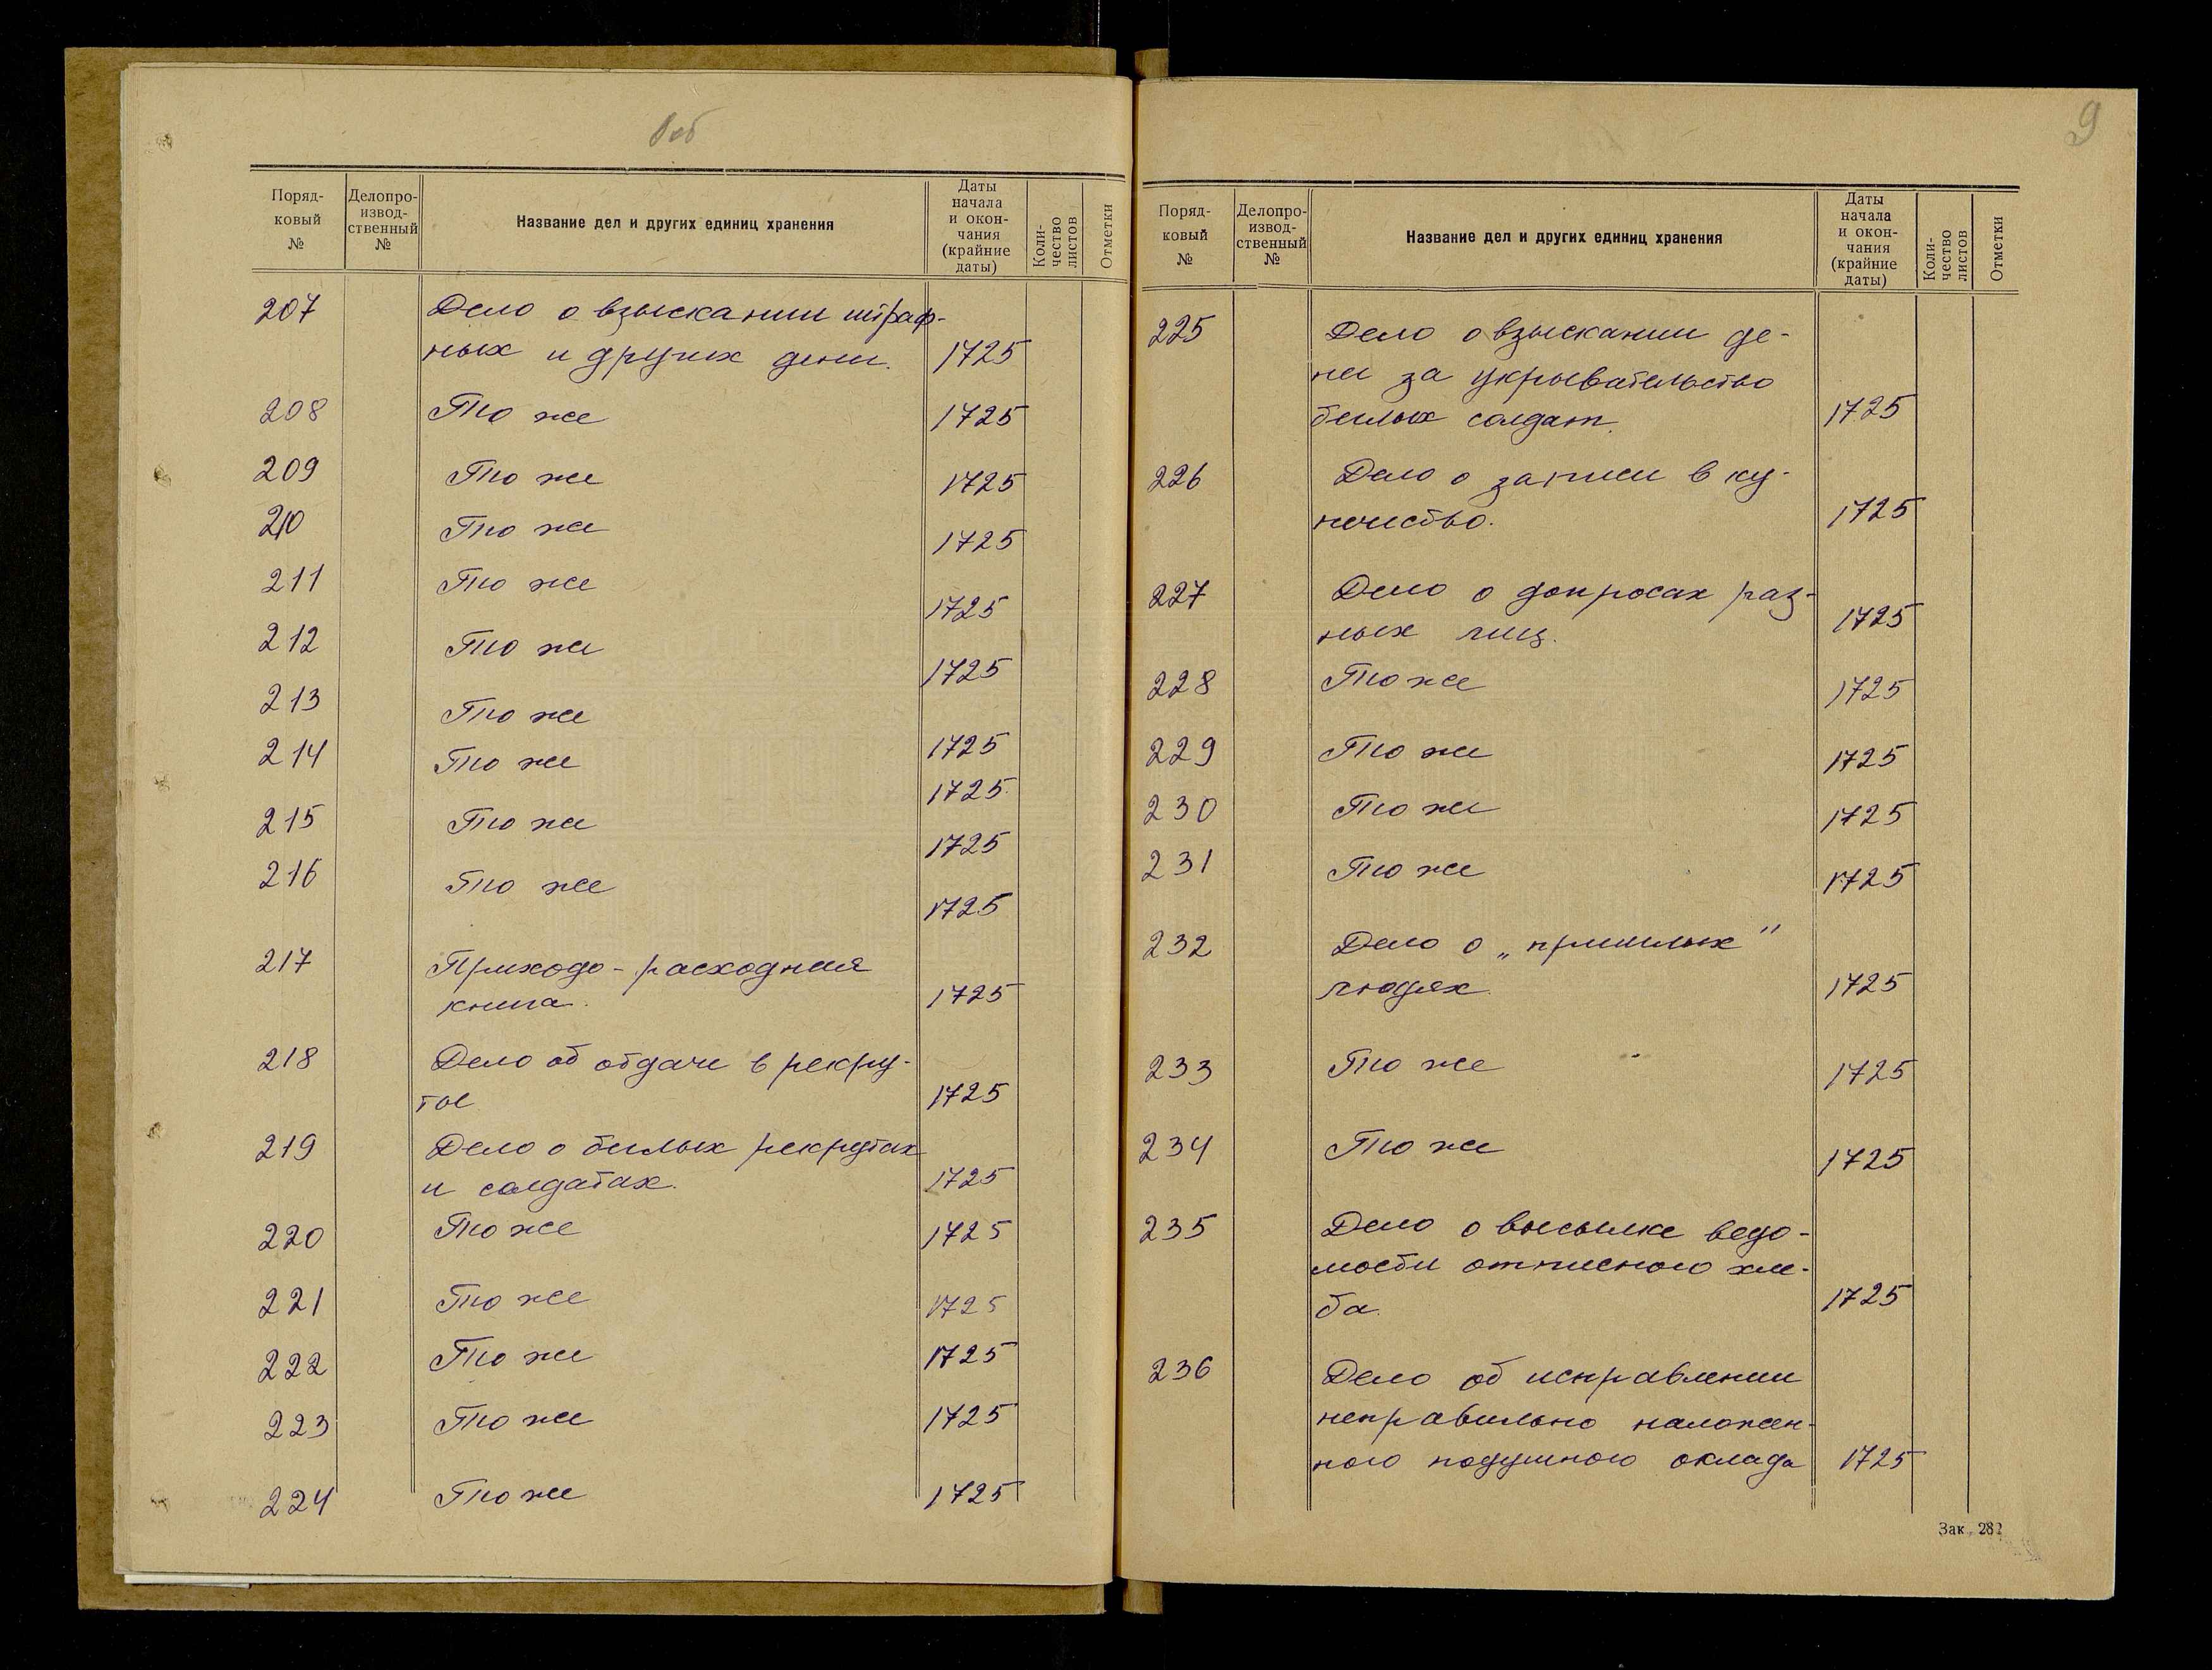 8 об
Поряд-
ковый
№
Делопро-
извод-
ственный
№
Название дел и других единиц хранения
Даты
начала
и окон-
чания
(крайние
даты)
Коли-
чество
листов
Отметки
207 Дело о взыскании штраф-
ных и других денег. 1725
208 То же 1725
209 То же 1725
210 То же 1725
211 То же 1725
212 То же 1725
213 То же 1725
214 То же 1725
215 То же 1725
216 То же 1725
217 Приходо-расходная
книга. 1725
218 Дело об отдаче в рекру-
ты 1725
219 Дело о беглых рекрутах
и солдатах. 1725
220 То же 1725
221 То же 1725
222 То же 1725
223 То же 1725
224 То же 1725
9
Поряд-
ковый
№
Делопро-
извод-
ственный
№
Название дел и других единиц хранения
Даты
начала
и окон-
чания
(крайние
даты)
Коли-
чество
листов
Отметки
225 Дело о взыскании де-
нег за укрывательство
беглых солдат. 1725
226 Дело о записи в ку-
печество. 1725
227 Дело о допросах раз-
ных лиц. 1725
228 То же 1725
229 То же 1725
230 То же 1725
231 То же 1725
232 Дело о „пришлых"
людях. 1725
233 То же 1725
234 То же 1725
235 Дело о высылке ведо-
мости отписного хле-
ба. 1725
236 Дело об исправлении
неправильно наложен-
ного подушного оклада 1725
Зак. 282